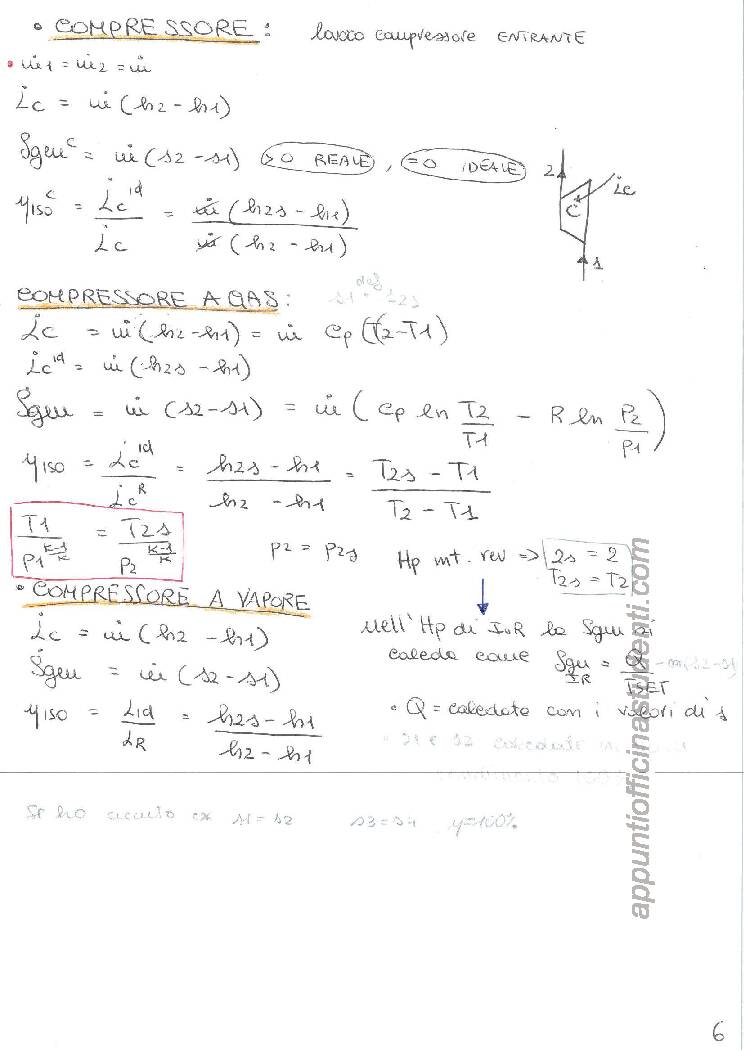 • COMPRESSORE: lavoro compressore ENTRANTE
• ṁ1 = ṁ2 = ṁ
L̇c = ṁ (h2 - h1)
Ṡgen^c = ṁ (s2 - s1) >0 REALE, =0 IDEALE
ηISO^c = L̇c^id / L̇c = ṁ (h2s - h1) / ṁ (h2 - h1)
2 C L̇c 1
COMPRESSORE A GAS:
L̇c = ṁ (h2 - h1) = ṁ cp (T2 - T1)
L̇c^id = ṁ (h2s - h1)
Ṡgen = ṁ (s2 - s1) = ṁ ( cp ln T2/T1 - R ln P2/P1 )
ηISO = L̇c^id / L̇c^R = h2s - h1 / h2 - h1 = T2s - T1 / T2 - T1
T1 / P1^(K-1/K) = T2s / P2^(K-1/K)
P2 = P2s
Hp mt. rev => 2s = 2
T2s = T2
• COMPRESSORE A VAPORE
L̇c = ṁ (h2 - h1)
Ṡgen = ṁ (s2 - s1)
ηISO = Lid / LR = h2s - h1 / h2 - h1
Nell'Hp di I.R la Sgen si
calcola come Sgen IR = Q / TSET - m(s2 - s1)
• Q = calcolate con i valori di s
• s1 e s2 calcolate
rendimento 100%
Se ho circuito ex s1 = s2 s3 = s4 η=100%
appuntiofficinastudenti.com
6